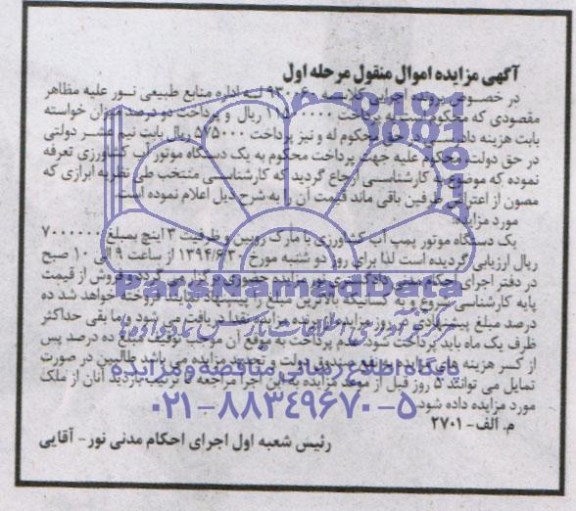 آگهی مزایده اموال منقول مرحله اول
در خصوص پرونده اجرایی کلاسه ۹۳۰۰۶۰ لـه اداره منابع طبیعی نـور علیه مظاهر
مقصودی که محکوم است به پرداخت ریال و پرداخت دو درصد میزان خواسته
بابت هزینه دادرسی در حق محکوم له و نیز پرداخت ۵۷۵۰۰۰ ریال بابت نیم عشـر دولتی
در حق دولت محکوم علیه جهت پرداخت محکوم به یک دستگاه موتور آب کشاورزی تعرفه
نموده که موضوع به کارشناسـی ارجاع گردید که کارشناسـی منتخب طی نظریه ابرازی که
مصون از اعتراض طرفین باقی ماند قیمت آن را به شرح ذیل اعلام نموده است.
مورد مزایده:
یک دستگاه موتور پمپ آب کشاورزی با مارک روبین و ظرفیت ۳ اینچ بمبلغ ۷۰۰۰۰۰۰
ریال ارزیابی گردیده است لذا برای روز دو شنبه مورخ ۱۳۹۴/۶/۳۰ از ساعت ۹ الی ۱۰ صبح
در دفتر اجرای احکام مدنی دادگستری نور مزایده حضوری برگزار می گردد و فروش از قیمت
پایه کارشناسی شروع و به کسانیکه بالاترین مبلغ را پیشنهاد نمایند فروخته خواهد شد ده
درصد مبلغ پیشنهادی در روز مزایده از برنده مزایده نقدا دریافت می شود و مابقی حداکثر
ظرف یک ماه باید پرداخت شود. عدم پرداخت به موقع آن موجب توقیف مبلغ ده درصد پس
از کسر هزینه های مزایده به نفع صندوق دولت و تجدید مزایده می باشد طالبین در صورت
تمایل می توانند ۵ روز قبل از موعد مزایده به این اجرا مراجعه تا ترتیب بازدید آنان از ملک
مورد مزایده داده شود.
م. الف- ۲۷۰۱
رئیس شعبه اول اجرای احکام مدنی نور- آقایی
ParsNamadData
مرکز فرآوری اطلاعات پارس نماد داده ها
پایگاه اطلاع رسانی مناقصه و مزایده
۰۲۱-۸۸۳۴۹۶۷۰-۵